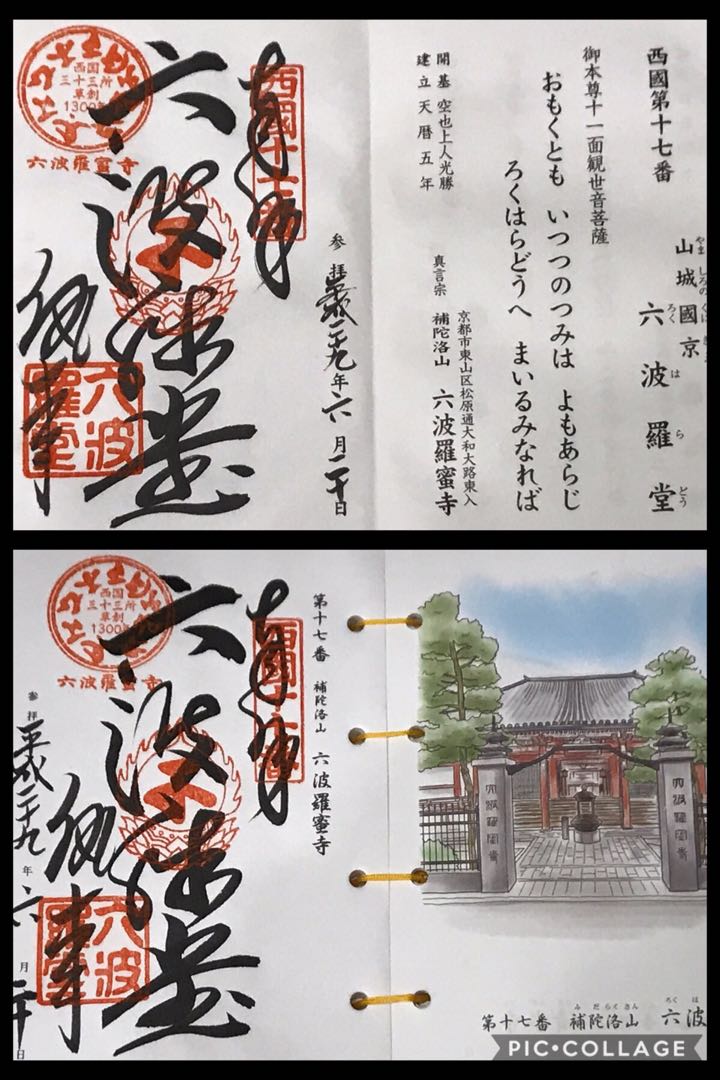 西國第十七番
山城國京
やましろのくに
六波羅堂
ろくはらどう
御本尊十一面観世音菩薩
おもくとも いつつのつみは よもあらじ
ろくはらどうへ まいるみなれば
開基 空也上人光勝
建立 天暦五年
京都市東山区松原通大和大路東入
真言宗 補陀洛山 六波羅蜜寺
西國十七番
奉拝
参拝 平成二十九年六月二十日
六波羅蜜寺
西国
三十三所
草創
1300年
六波羅堂
第十七番 補陀洛山 六波羅蜜寺
西國十七番
奉拝
西国
三十三所
草創
1300年
六波羅蜜寺
六波羅堂
参拝 平成二十九年六月二十日
六波羅蜜寺
第十七番 補陀洛山 六波
ふだらくさん ろくは
PIC•COLLAGE